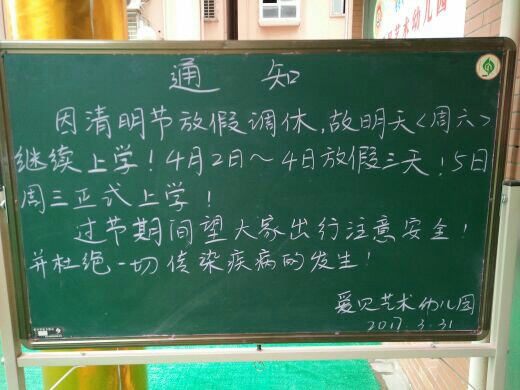 艺术幼儿园
通 知
因清明节放假调休,故明天<周六>
继续上学!4月2日~4日放假三天!5日
周三正式上学!
过节期间望大家出行注意安全!
并杜绝一切传染疾病的发生!
爱贝艺术幼儿园
2017.3.31